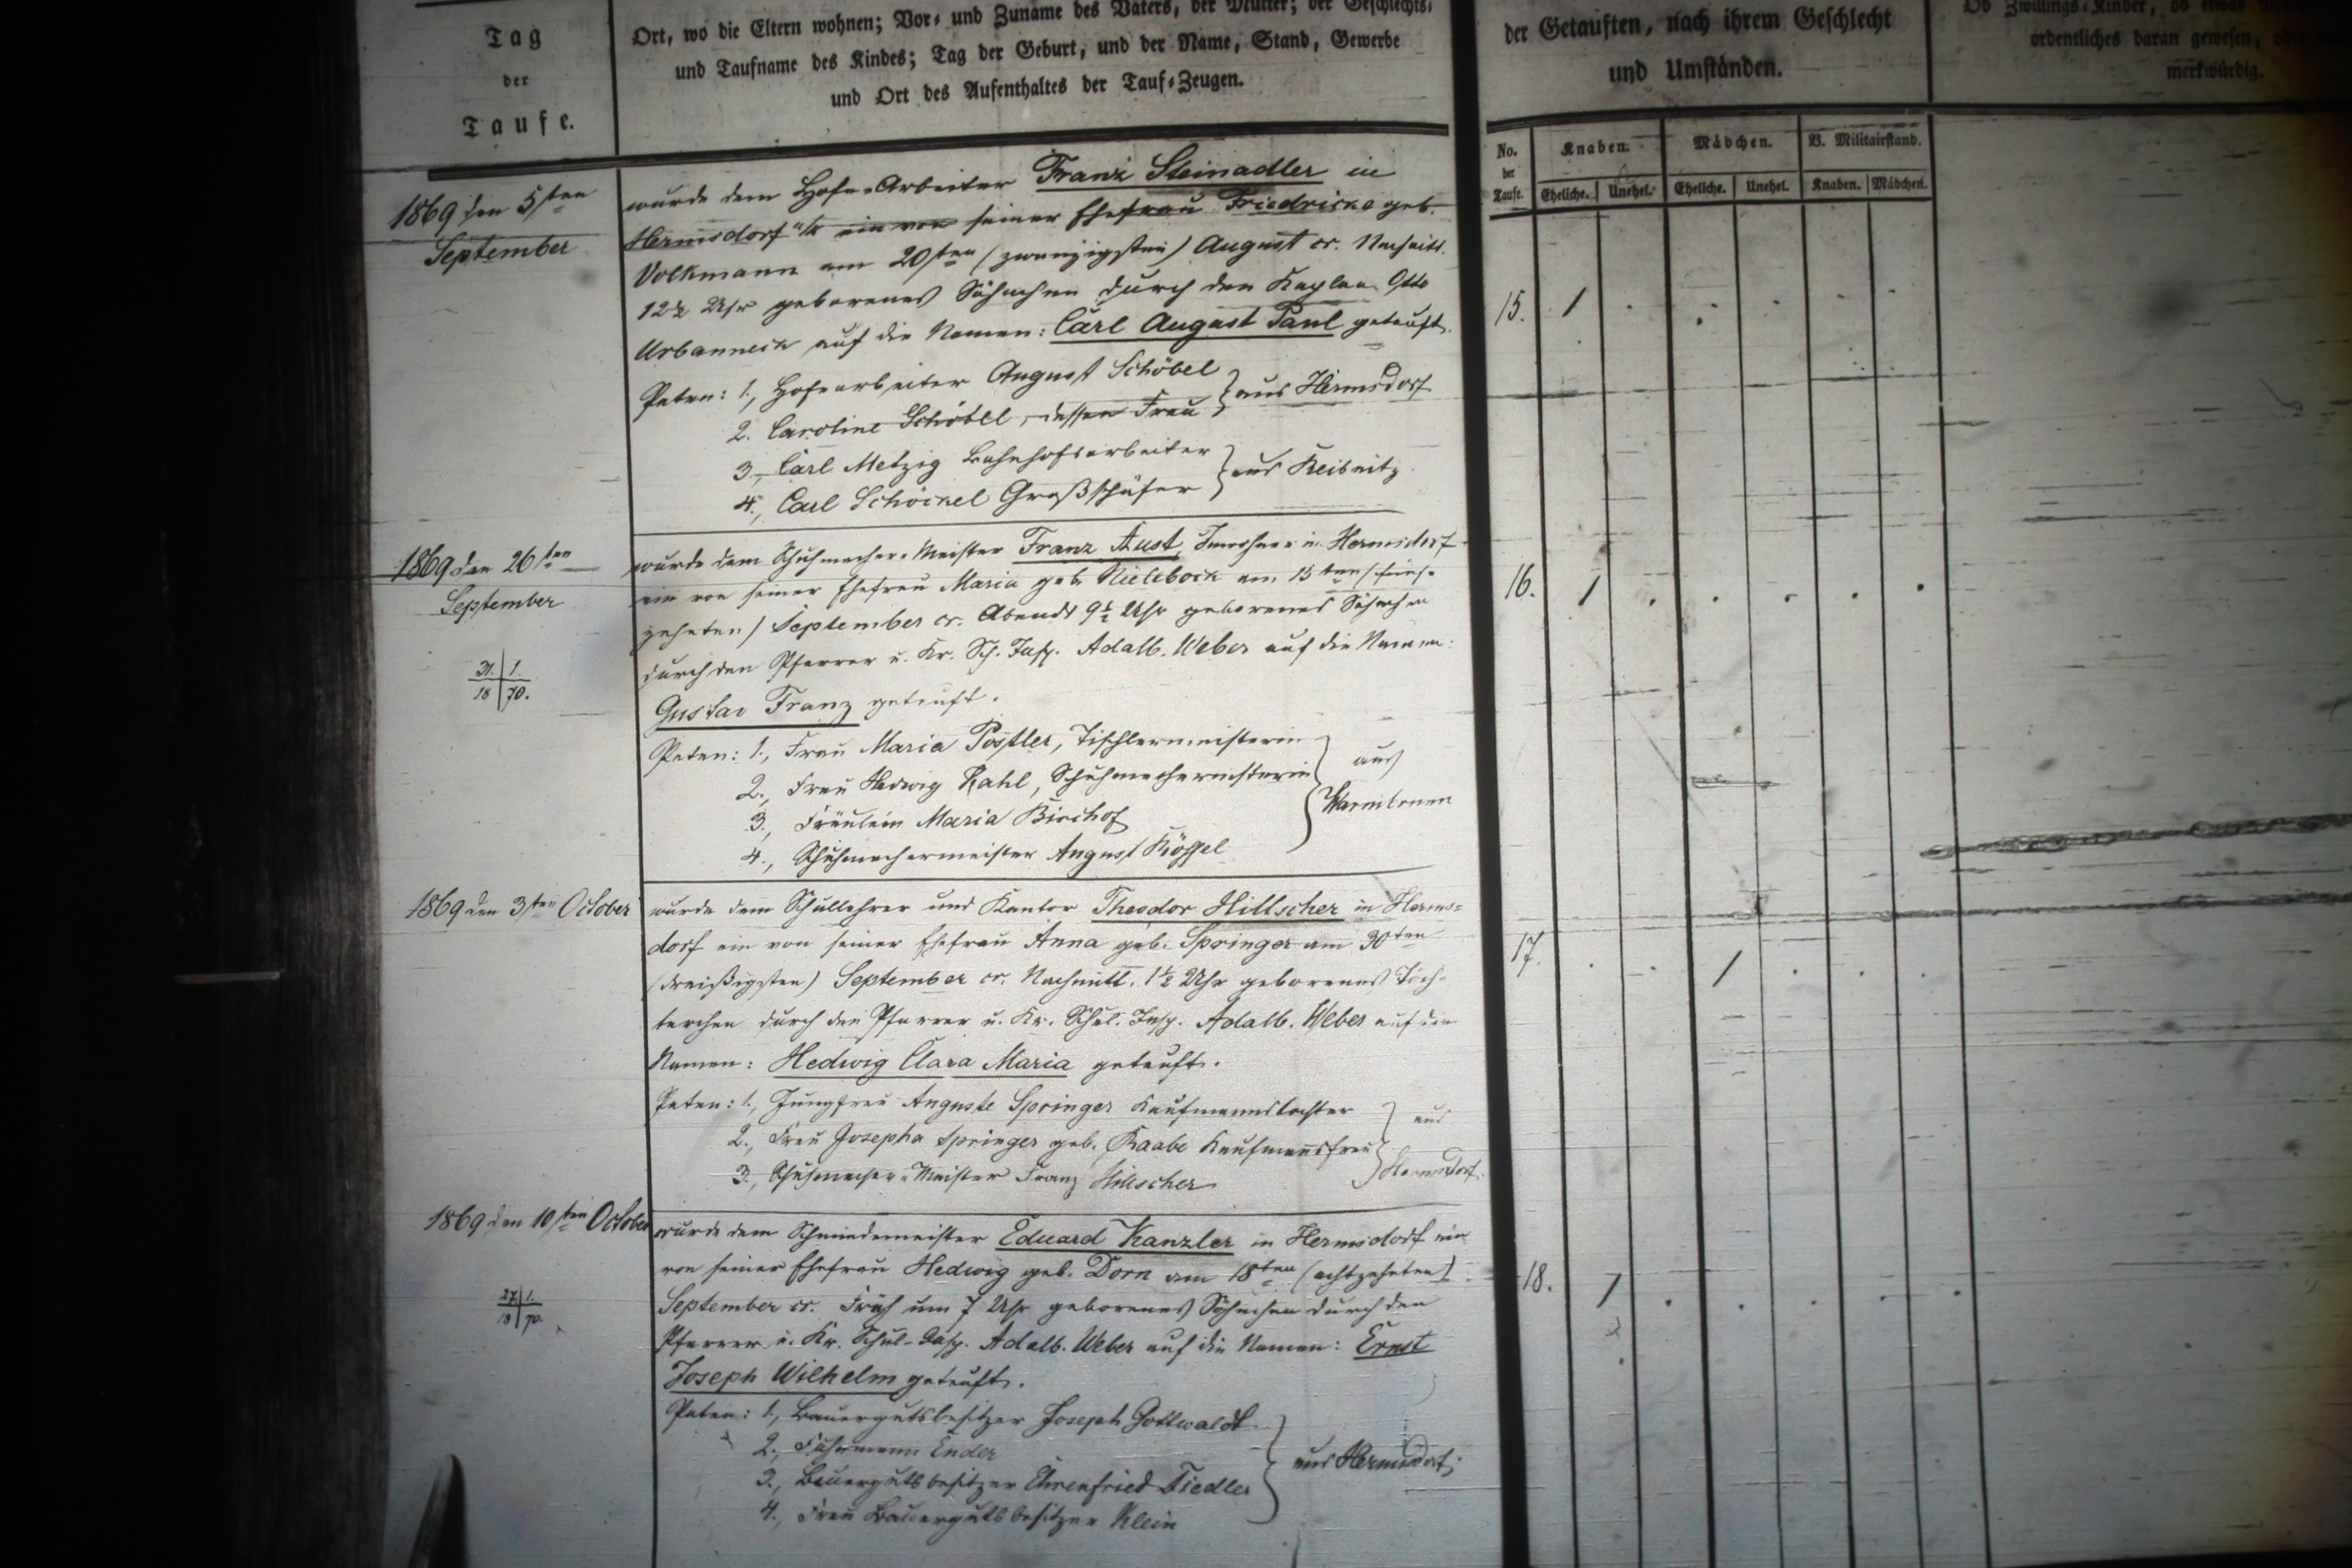 Tag
der
Taufe.
Ort, wo die Eltern wohnen; Vor- und Zuname des Vaters, der Mutter; der Geschlechts-
und Taufname des Kindes; Tag der Geburt, und der Name, Stand, Gewerbe
und Ort des Aufenthaltes der Tauf-Zeugen.
der Getauften, nach ihrem Geschlecht
und Umständen.
Ob Zwillings-Kinder, ob etwas
ordentliches daran gewesen,
merkwürdig.
No. der Taufe.
Knaben. Mädchen. V. Militairstand.
Eheliche. Unehel. Eheliche. Unehel. Knaben. Mädchen.
1869 den 5ten
September
wurde dem Hofe-Arbeiter Franz Steinadler in
Hermsdorf ein von seiner Ehefrau Friedricke geb.
Volkmann am 20sten (zwanzigsten) August cr. Nachmitt.
12½ Uhr geborenes Söhnchen durch den Kaplan Otto
Urbanneck auf die Namen: Carl August Paul getauft.
15. 1
Paten: 1., Hofearbeiter August Schöbel
2. Caroline Schöbel, dessen Frau
aus Hermsdorf
3., Carl Metzig Bahnhofsarbeiter
4., Carl Schöckel Großschäfer
aus Reibnitz
1869 den 26ten
September
31. 1.
18 70.
wurde dem Schuhmacher-Meister Franz Aust, Inwohner in Hermsdorf
ein von seiner Ehefrau Maria geb. Nielebock am 15ten (fünf-
zehnten) September cr. Abends 9½ Uhr geborenes Söhnchen
durch den Pfarrer u. Kr. Sch. Insp. Adalb. Weber auf die Namen:
Gustav Franz getauft.
16. 1
Paten: 1., Frau Maria Postler, Tischlermeisterin
2., Frau Hedwig Rahl, Schuhmachermeisterin
3., Fräulein Maria Birchof
4., Schuhmachermeister August Köppel
aus
Warmbrunn
1869 den 3ten October
wurde dem Schullehrer und Kantor Theodor Hillscher in Herms-
dorf ein von seiner Ehefrau Anna geb. Springer am 30ten
(dreißigsten) September cr. Nachmitt. 1½ Uhr geborenes Töch-
terchen durch den Pfarrer u. Kr. Schul. Insp. Adalb. Weber auf die
Namen: Hedwig Clara Maria getauft.
17. 1
Paten: 1., Jungfrau Auguste Springer Kaufmannstochter
2., Frau Josepha Springer geb. Raabe Kaufmannsfrau
3., Schuhmacher-Meister Franz Hillscher
aus
Hermsdorf.
1869 den 10ten October
27. 1.
18 70.
wurde dem Schmiedemeister Eduard Kanzler in Hermsdorf ein
von seiner Ehefrau Hedwig geb. Dorn am 18ten (achtzehnten)
September cr. Früh um 7 Uhr geborenes Söhnchen durch den
Pfarrer u. Kr. Schul-Insp. Adalb. Weber auf die Namen: Ernst
Joseph Wilhelm getauft.
18. 1
Paten: 1., Bauergutsbesitzer Joseph Gottwaldt
2., Fuhrmann Ender
3., Bauergutsbesitzer Ehrenfried Tiedler
4., Frau Bauergutsbesitzer Klein
aus Hermsdorf.